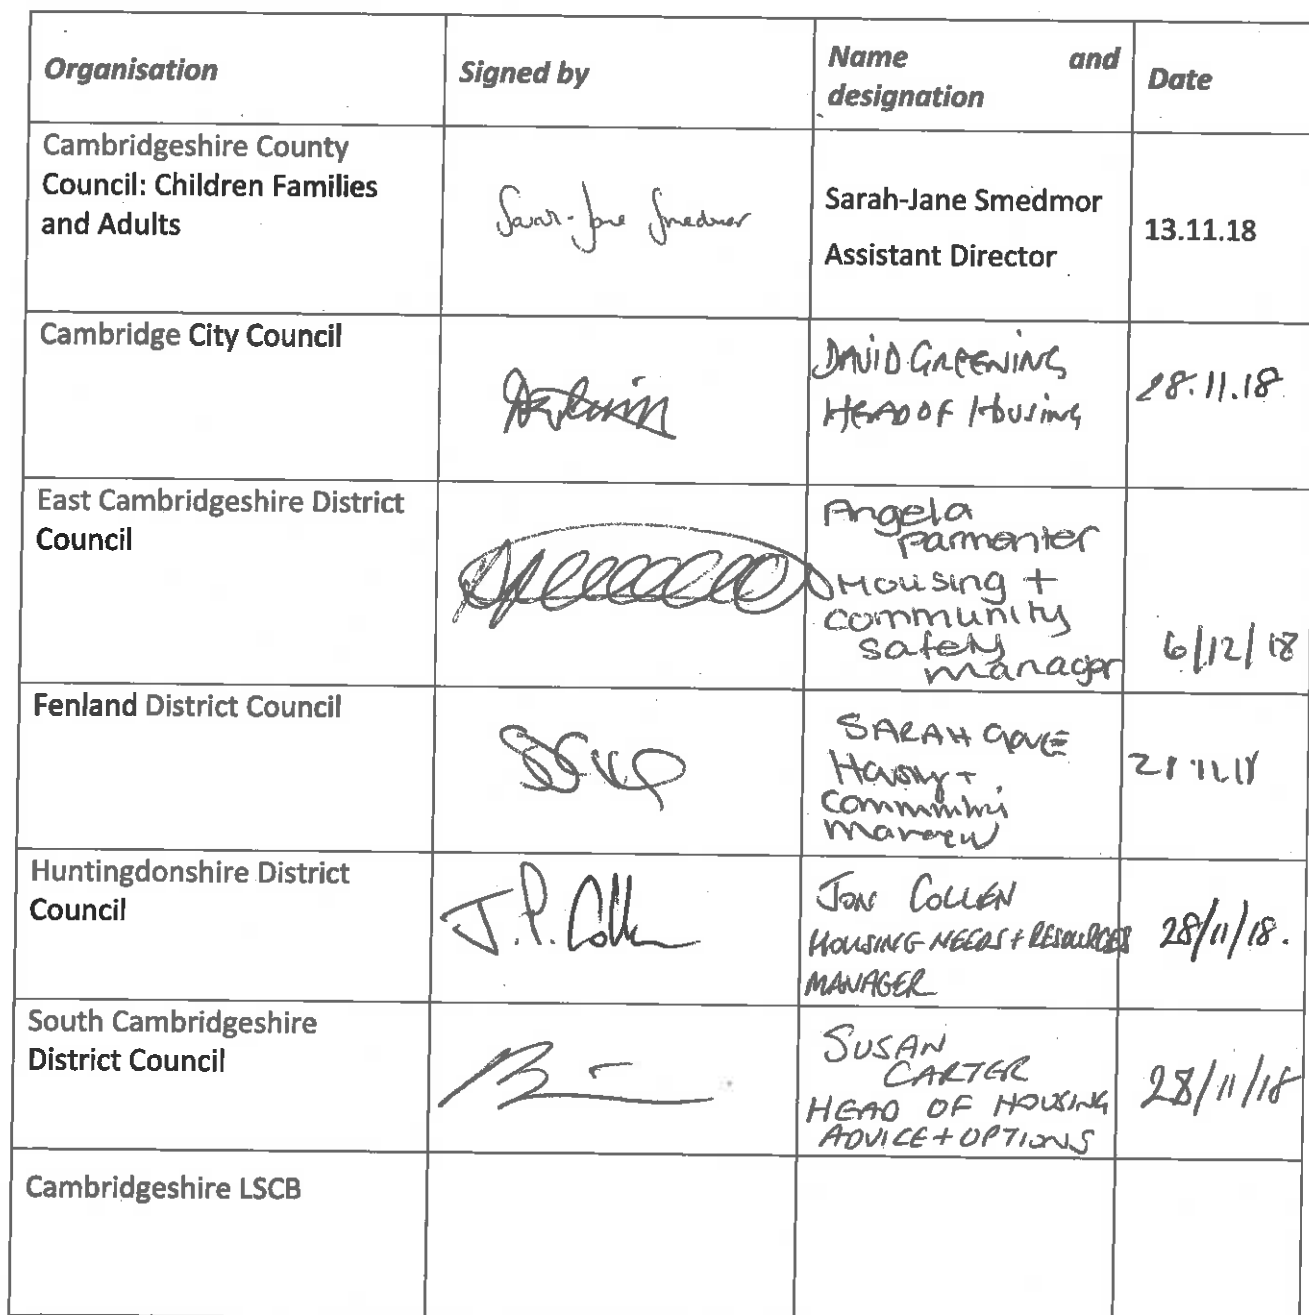 Organisation
Signed by
Name and
designation
Date
Cambridgeshire County
Council: Children Families
and Adults
Sarah-Jane Smedmor
Sarah-Jane Smedmor
Assistant Director
13.11.18
Cambridge City Council
DAVID GREENING
HEAD OF HOUSING
28.11.18
East Cambridgeshire District
Council
Angela
Parmenter
Housing +
community
safety
manager
6/12/18
Fenland District Council
SARAH GOVE
Housing +
Community
Manager
Huntingdonshire District
Council
J.P. Collen
JON COLLEN
HOUSING NEEDS + RESOURCES
MANAGER
28/11/18.
South Cambridgeshire
District Council
SUSAN
CARTER
HEAD OF HOUSING
ADVICE + OPTIONS
28/11/18
Cambridgeshire LSCB